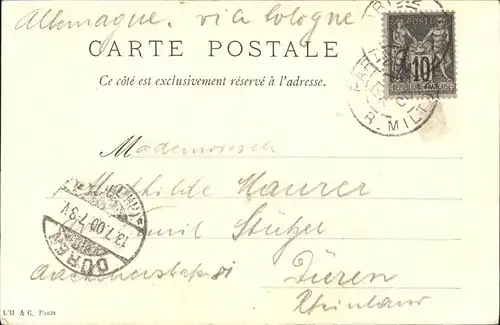 Allemagne. via Cologne
CARTE POSTALE
Ce côté est exclusivement réservé à l'adresse.
POSTE
10
REPUBLIQUE FRANÇAISE
PARIS
R. MILT
Mademoisech
Mathilde Maurer
Emil Stützer
Aachenerstrasse 81
Düren
Rheinland
DUREN
13.7.00.7-8V.
L'H & C, PARIS